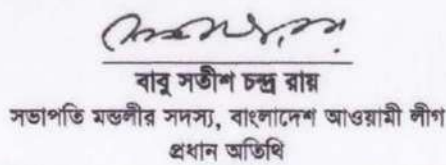 বাবু সতীশ চন্দ্র রায়
সভাপতি মন্ডলীর সদস্য, বাংলাদেশ আওয়ামী লীগ
প্রধান অতিথি